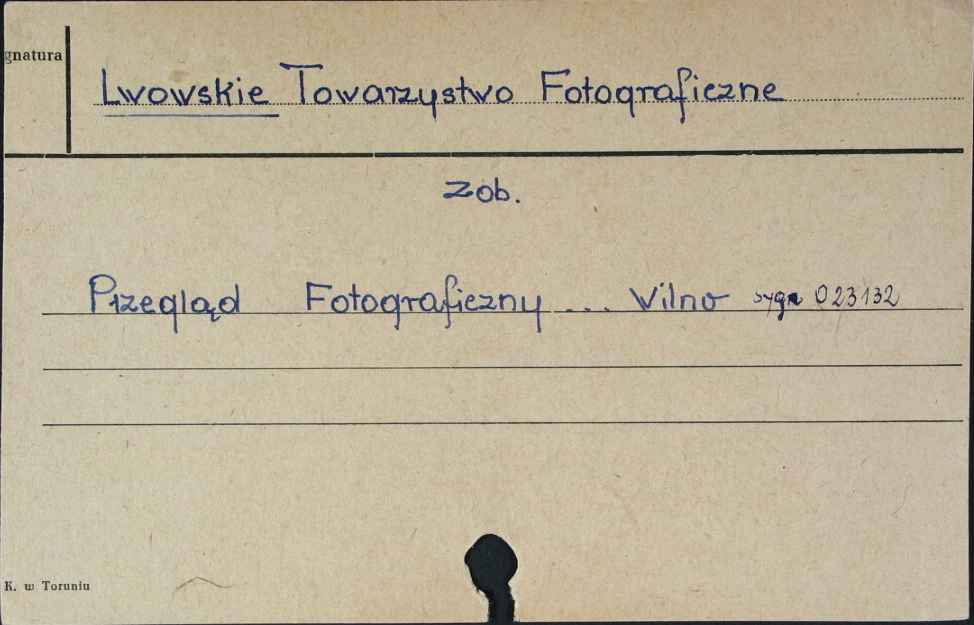 gnatura
Lwowskie Towarzystwo Fotograficzne
Zob.
Przegląd Fotograficzny ... Wilno sygn 023132
K. w Toruniu